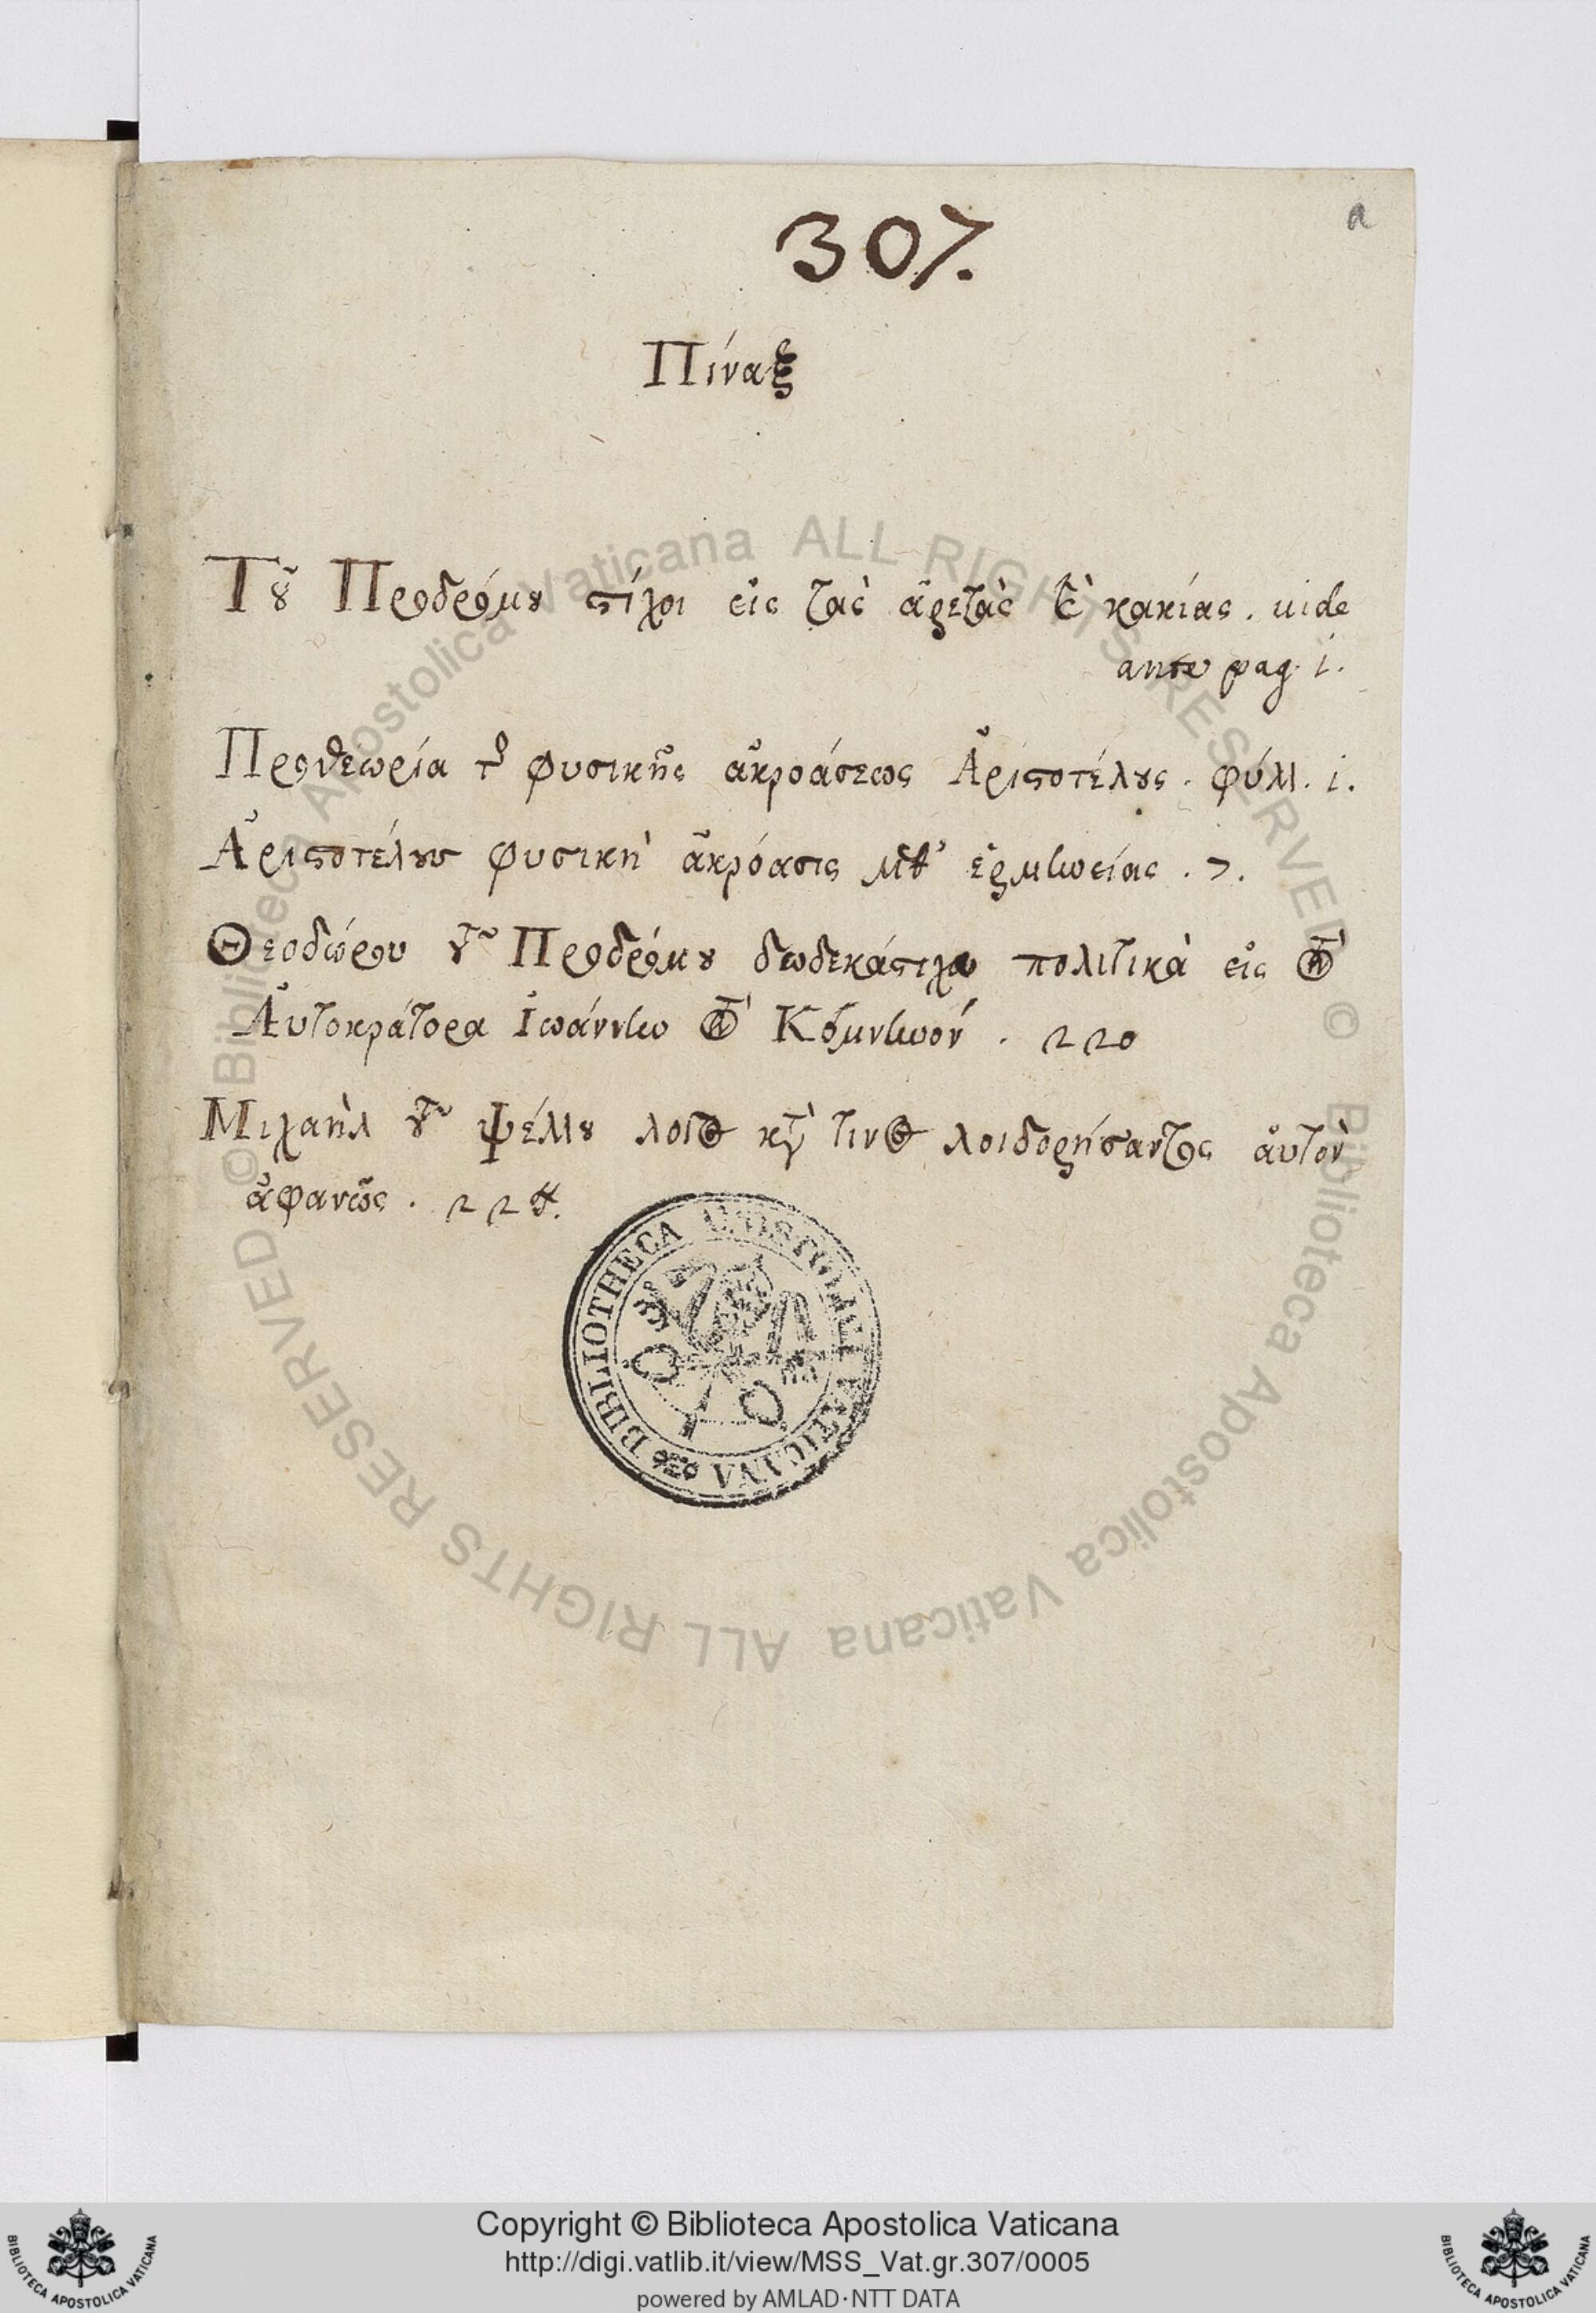 a
307.
Πίναξ
Τοῦ Προδρόμου στίχοι εἰς τὰς ἀρετὰς καὶ κακίας. uide
ante pag. 1.
Προθεωρία τῆς φυσικῆς ἀκροάσεως Ἀριστοτέλους. φύλλ. 1.
Ἀριστοτέλους φυσικὴ ἀκρόασις μεθ' ἑρμηνείας. 7.
Θεοδώρου τοῦ Προδρόμου δωδεκάστιχα πολιτικὰ εἰς τὸν
Αὐτοκράτορα Ἰωάννην τὸν Κομνηνόν. 220
Μιχαὴλ τοῦ Ψέλλου κατὰ τινος λοιδορήσαντος αὐτὸν
ἀφανῶς.
BIBLIOTHECA APOSTOLICA VATICANA
© Biblioteca Apostolica Vaticana ALL RIGHTS RESERVED © Biblioteca Apostolica Vaticana ALL RIGHTS RESERVED
Copyright © Biblioteca Apostolica Vaticana
http://digi.vatlib.it/view/MSS_Vat.gr.307/0005
powered by AMLAD·NTT DATA
BIBLIOTECA APOSTOLICA VATICANA
BIBLIOTECA APOSTOLICA VATICANA